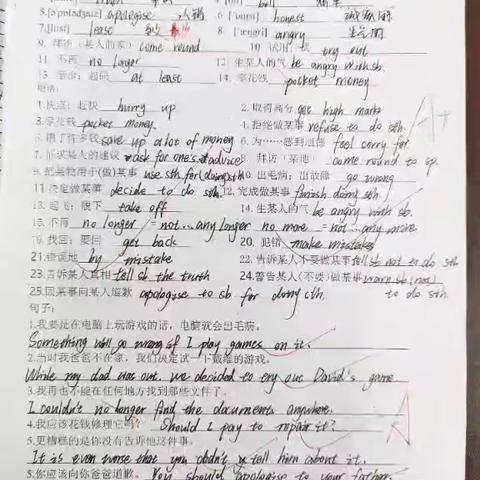 5.[ə'pɒlədʒaɪz] apologise 6.['ɒnɪst] honest 诚实的
7.[liːst] least 8.['æŋgri] angry 生气的
9. 拜访(某人的家) come round 10. 试用 try out
11. 不再 no longer 12. 生某人的气 be angry with sb.
13. 至少;起码 at least 14. 零花钱 pocket money
短语:
1.快点;赶快 hurry up 2.取得高分 get high mark
3.零花钱 pocket money. 4.拒绝做某事 refuse to do sth.
5.攒了许多钱 save up a lot of money 6.为……感到遗憾 feel sorry for
7.征求某人的建议 ask for one's advice 拜访(某地) come round to sp.
9.把某物用于(做)某事 use sth for doing sth 10.出毛病;出故障 go wrong
11.决定做某事 decide to do sth. 12.完成做某事 finish doing sth.
13.起飞;脱下 take off 14.生某人的气 be angry with sb.
15.不再 no longer = not...any longer no more = not...any more.
19.找回;要回 get back 20.犯错 make mistakes
21.错误地 by mistake 22.告诉某人不要做某事 tell sb not to do sth
23.告诉某人真相 tell sb the truth 24.警告某人(不要)做某事 warn sb (not)
25.因某事向某人道歉 apologise to sb for doing sth. to do sth
句子:
1.我要是在电脑上玩游戏的话,电脑就会出毛病。
Something will go wrong if I play games on it.
2.当时我爸爸不在家,我们决定试一下戴维的游戏。
While my dad was out, we decided to try out David's game
3.我再也不能在任何地方找到那些文件了。
I couldn't no longer find the documents anywhere.
4.我应该花钱修理它吗? Should I pay to repair it?
5.更糟糕的是你没有告诉他这件事。
It is even worse that you didn't tell him about it.
6.你应该向你爸爸道歉。 You should apologise to your father.
A+
A